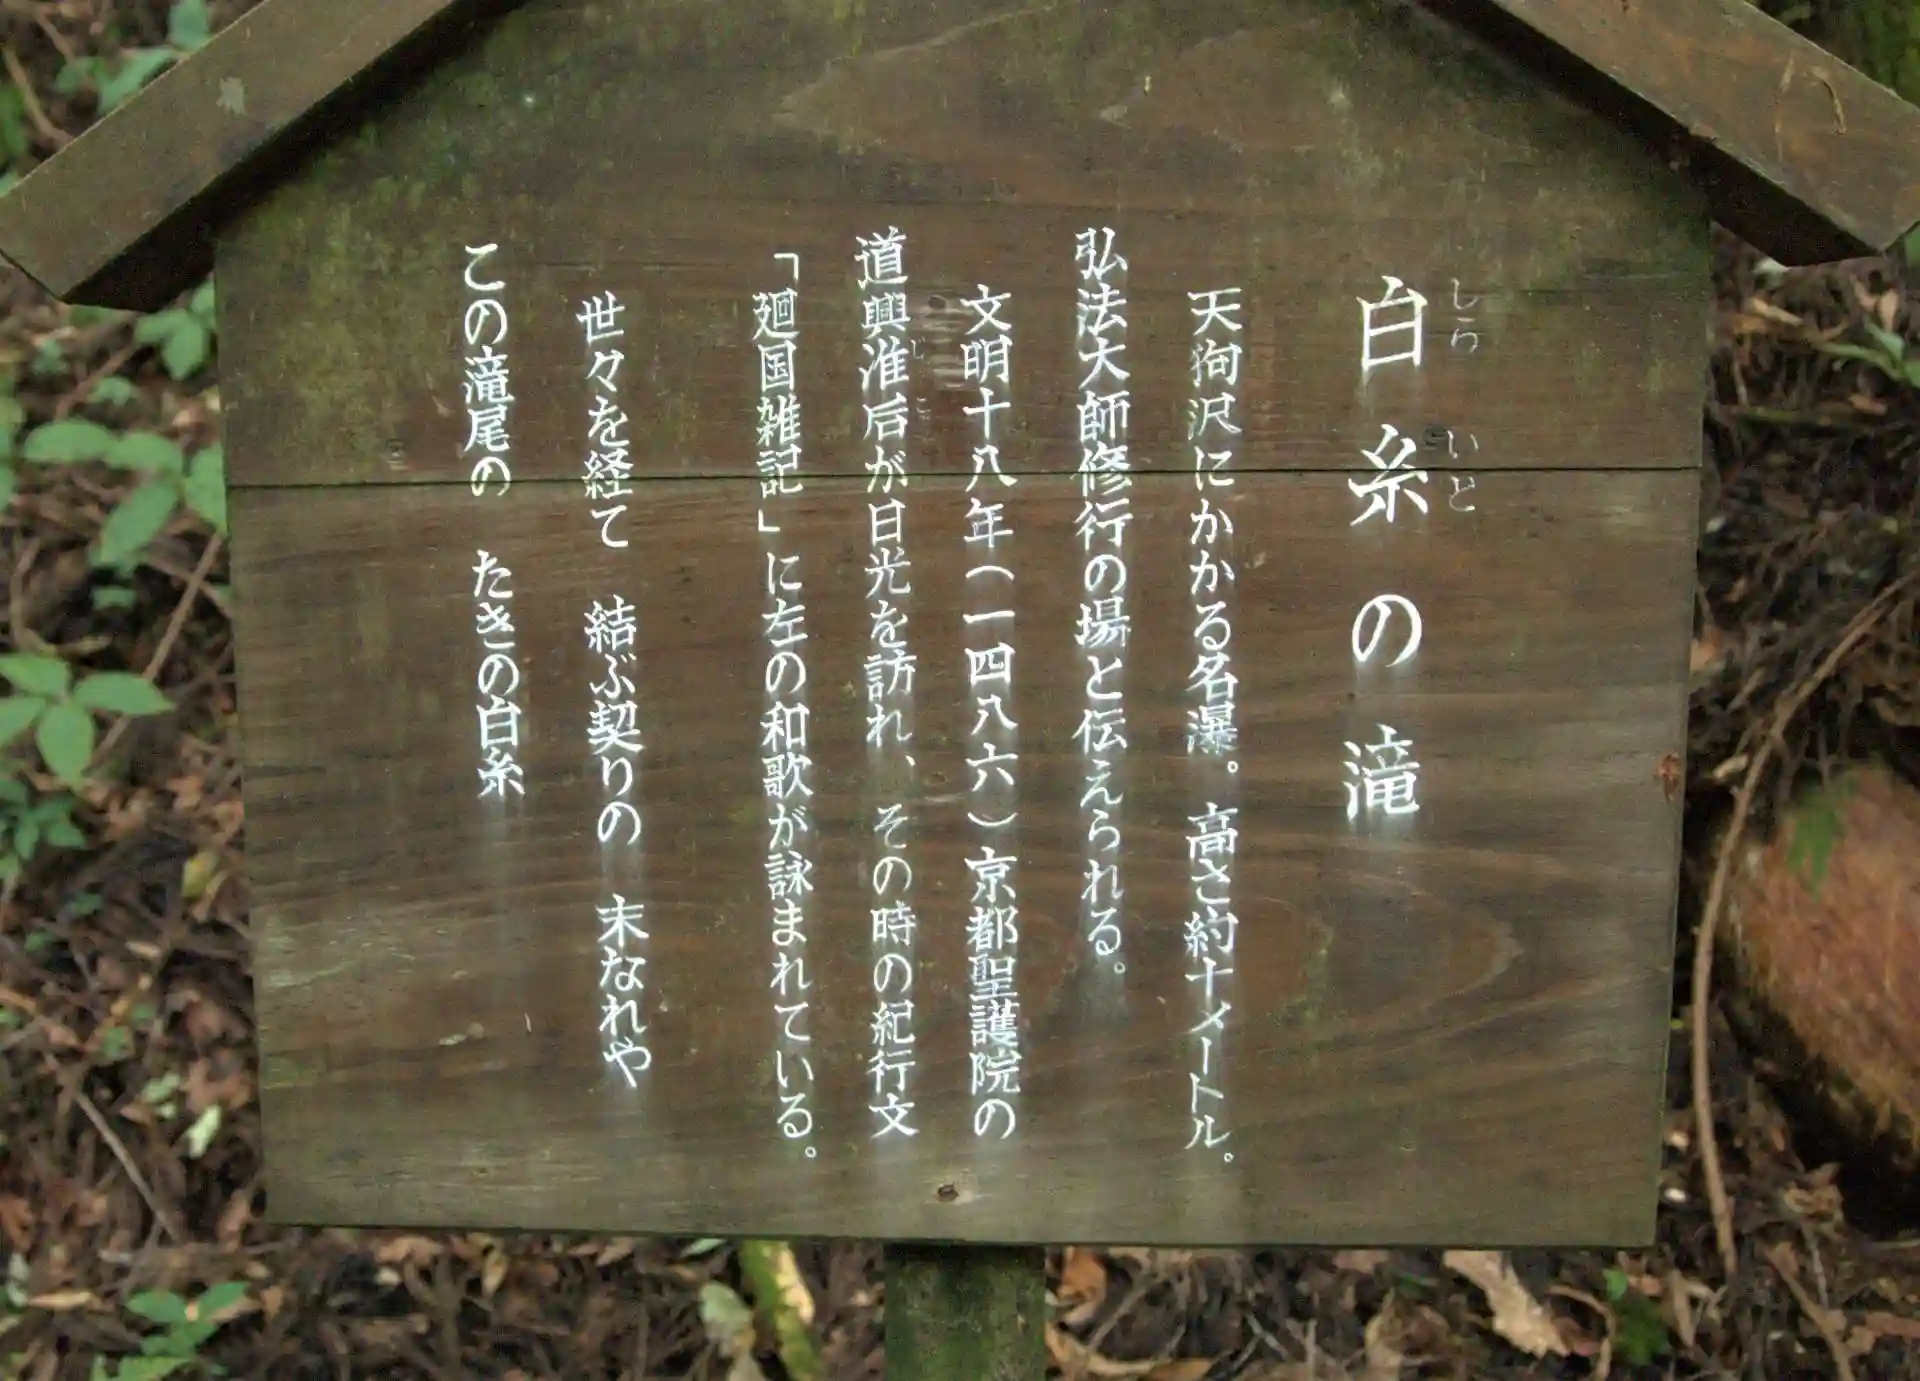 白糸の滝
しら いと
天狗沢にかかる名瀑。高さ約十メートル。
弘法大師修行の場と伝えられる。
文明十八年(一四八六)京都聖護院の
道興准后が日光を訪れ、その時の紀行文
じ ごう
「廻国雑記」に左の和歌が詠まれている。
世々を経て 結ぶ契りの 末なれや
この滝尾の たきの白糸